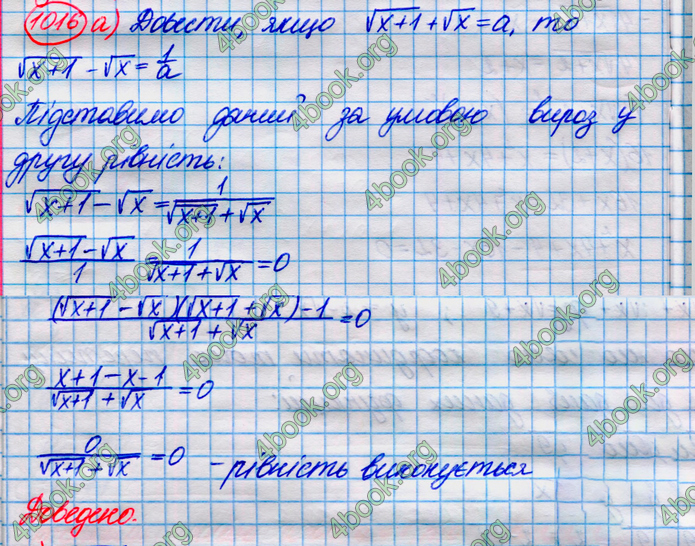 1016 а) Довести, якщо √x+1 + √x = a, то
√x+1 - √x = 1/a
Підставимо даний за умовою вираз у
другу рівність:
√x+1 - √x = 1/(√x+1 + √x)
(√x+1 - √x)/1 - 1/(√x+1 + √x) = 0
((√x+1 - √x)(√x+1 + √x) - 1)/(√x+1 + √x) = 0
(x+1 - x - 1)/(√x+1 + √x) = 0
0/(√x+1 + √x) = 0 - рівність виконується
Доведено.
4book.org